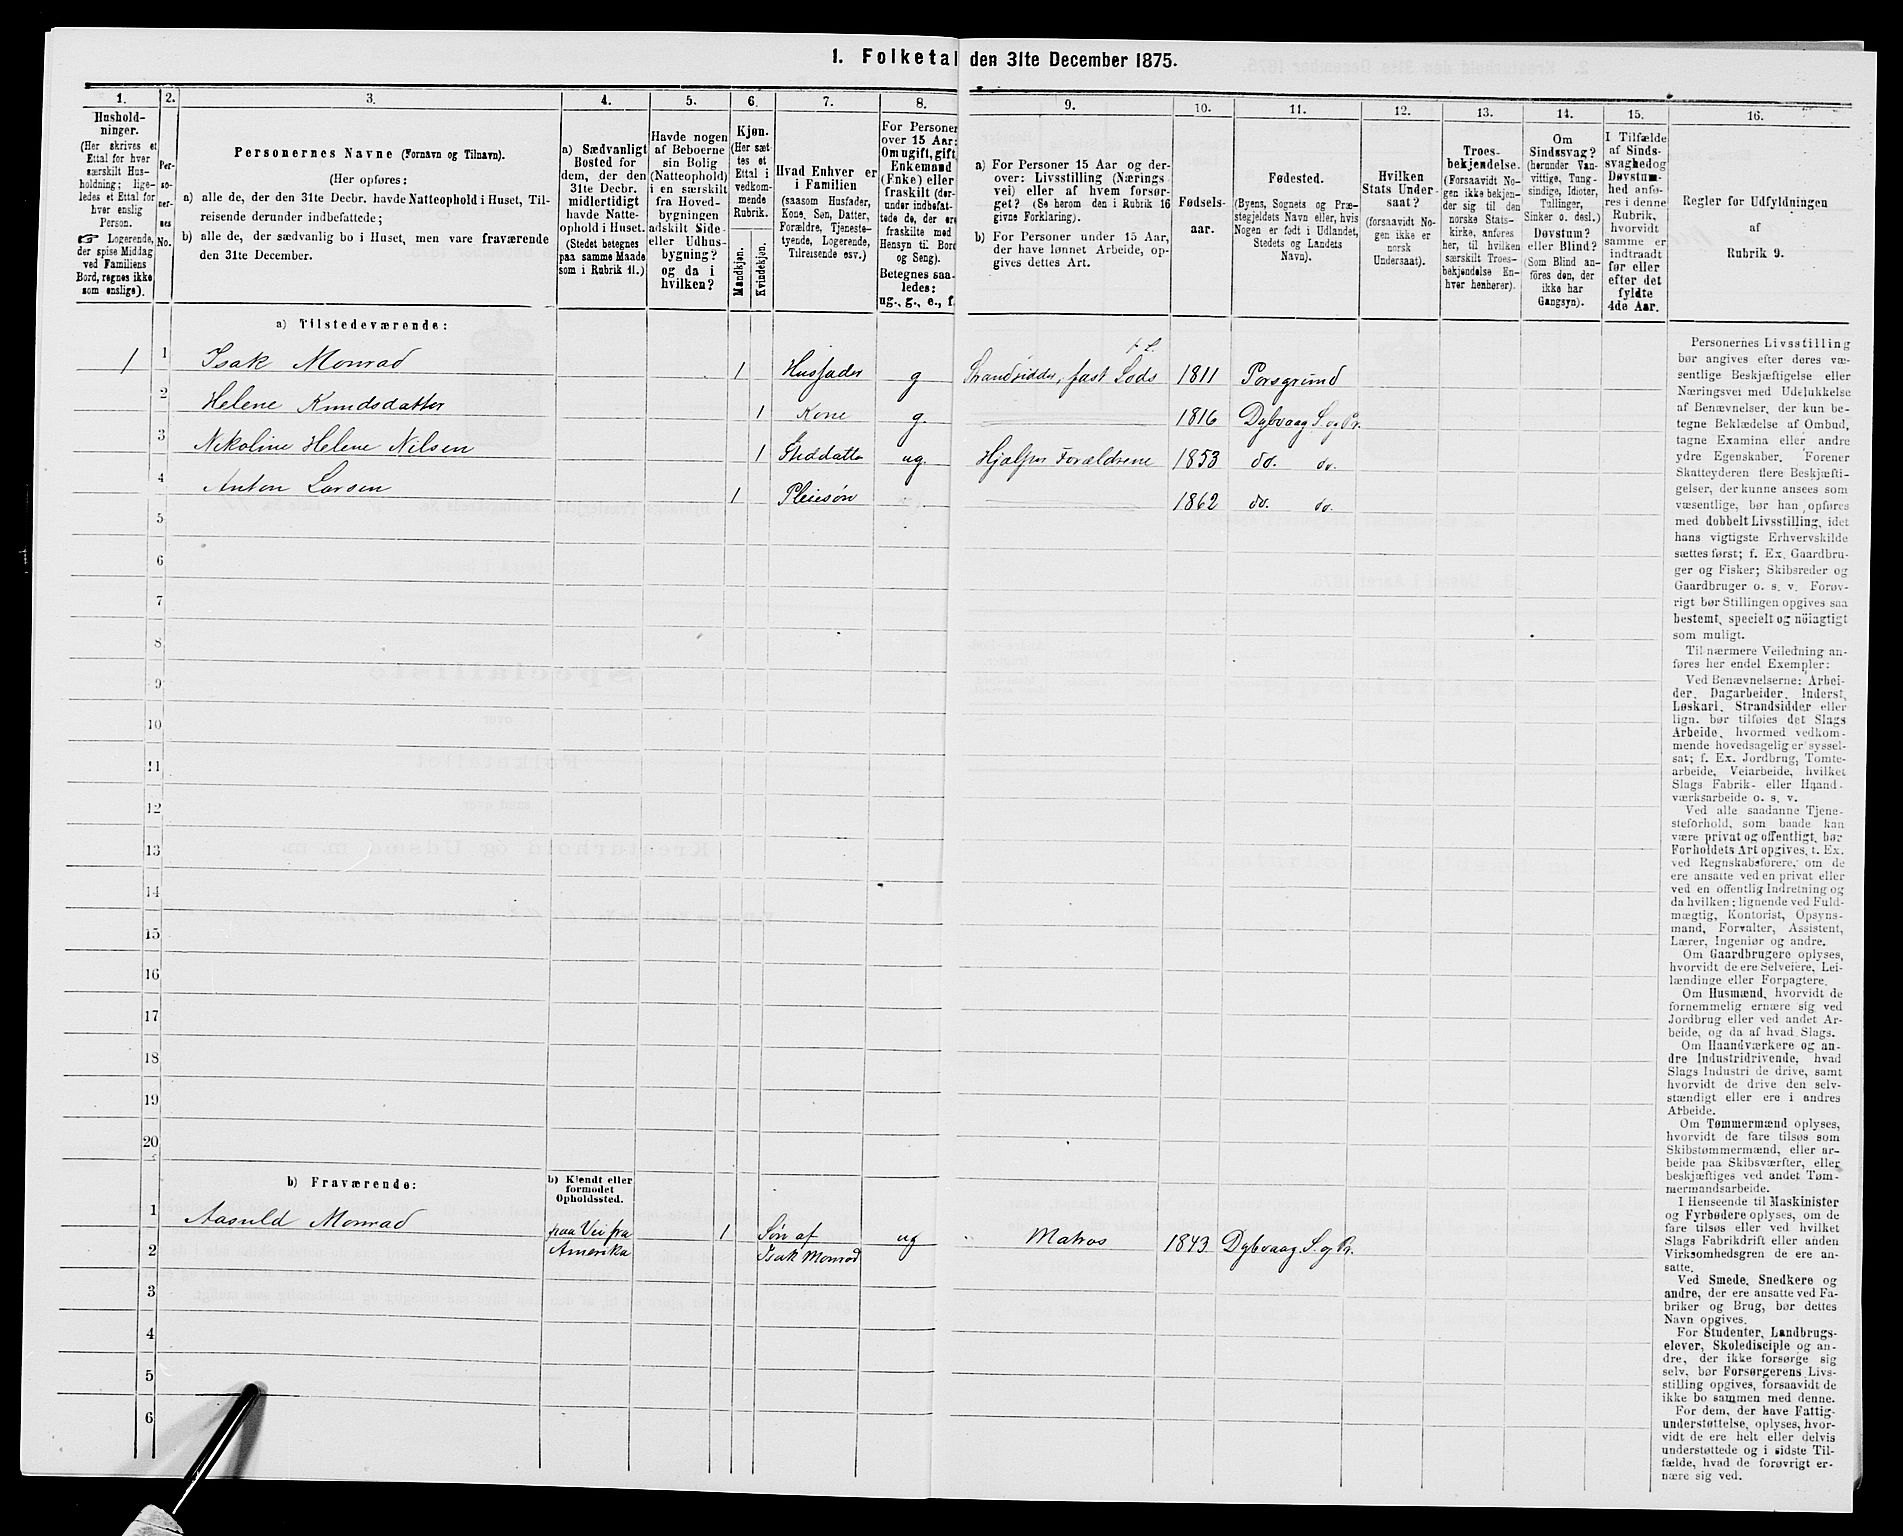 1. Folketal den 31te December 1875.
1. 2. 3. 4. 5. 6. 7. 8. 9. 10. 11. 12. 13. 14. 15. 16.
Hushold-
ninger.
(Her skrives et
Ettal for hver
særskilt Hus-
holdning; lige-
ledes et Ettal for
hver enslig
Person.
☞ Logerende,
der spise Middag
ved Familiens
Bord, regnes ikke
som enslige).
Per-
so-
ner-
nes
No.
Personernes Navne (Fornavn og Tilnavn).
(Her opføres:
a) alle de, der den 31te Decbr. havde Natteophold i Huset, Til-
reisende derunder indbefattede;
b) alle de, der sædvanlig bo i Huset, men vare fraværende
den 31te December.
a) Sædvanligt
Bosted for
dem, der den
31te Decbr.
midlertidigt
havde Natte-
ophold i Huset.
(Stedet betegnes
paa samme Maade
som i Rubrik 11.)
Havde nogen
af Beboerne
sin Bolig
(Natteophold)
i en særskilt
fra Hoved-
bygningen
adskilt Side-
eller Udhus-
bygning?
og da i
hvilken?
Kjøn.
(Her sæt-
tes et
Ettal i
vedkom-
mende
Rubrik.
Mandkjøn.
Kvindekjøn.
Hvad Enhver er
i Familien
(saasom Husfader,
Kone, Søn, Datter,
Forældre, Tjeneste-
tyende, Logerende,
Tilreisende osv.)
For Personer
over 15 Aar:
Om ugift, gift,
Enkemand
(Enke) eller
fraskilt (der-
under indbefat-
tede de, der ere
fraskilte med
Hensyn til Bord
og Seng).
Betegnes saa-
ledes:
ug., g., e., f.
a) For Personer 15 Aar og der-
over: Livsstilling (Nærings-
vei) eller af hvem forsør-
get? (Se herom den i Rubrik 16
givne Forklaring).
b) For Personer under 15 Aar,
der have lønnet Arbeide, op-
gives dettes Art.
Fødsels-
aar.
Fødested.
(Byens, Sognets og Præ-
stegjeldets Navn eller, hvis
Nogen er født i Udlandet,
Stedets og Landets
Navn).
Hvilken
Stats Under-
saat?
(forsaavidt No-
gen ikke er
norsk
Undersaat).
Troes-
bekjendelse.
(Forsaavidt No-
gen ikke bekjen-
der sig til den
norske Stats-
kirke, anføres
her, til hvilken
særskilt Troes-
bekjendelse En-
hver henhører).
Om
Sindssvag?
(herunder Van-
vittige, Tung-
sindige, Idioter,
Tullinger,
Sinker o. desl.)
Døvstum?
eller Blind?
(Som Blind an-
føres den, der
ikke har
Gangsyn).
I Tilfælde
af Sinds-
svaghed og
Døvstum-
hed anfø-
res i denne
Rubrik,
hvorvidt
samme er
indtraadt
før eller
efter det
fyldte
4de Aar.
Regler for Udfyldningen
af
Rubrik 9.
a) Tilstedeværende:
1 1 Isak Monrad 1 Husfader g Strandsidder, fast Lods 1811 Porsgrund
2 Helene Knudsdatter 1 Kone g. 1816 Dybvaag S. og Pr.
3 Nikoline Helene Nilsen 1 Steddatte ug. Hjælper Forældrene 1853 do. do.
4 Anton Larsen 1 Pleiesøn 1862 do. do.
5
6
7
8
9
10
11
12
13
14
15
16
17
18
19
20
b) Fraværende:
b) Kjendt eller
formodet
Opholdssted.
1 Aasuld Monrad paa Vei fra 1 Søn af ug Matros 1843 Dybvaag S. og Pr.
2 Amerika Isak Monrad
3
4
5
6
Personernes Livsstilling
bør angives efter deres væ-
sentlige Beskjæftigelse eller
Næringsvei med Udelukkelse
af Benævnelser, der kun be-
tegne Beklædelse af Ombud,
tagne Examina eller andre
ydre Egenskaber. Forener
Skatteyderen flere Beskjæfti-
gelser, der kunne ansees som
væsentlige, bør han opføres
med dobbelt Livsstilling, idet
hans vigtigste Erhvervskilde
sættes først; f. Ex. Gaardbru-
ger og Fisker; Skibsreder og
Gaardbruger o. s. v. Forøv-
rigt bør Stillingen opgives saa
bestemt, specielt og nöiagtigt
som muligt.
Til nærmere Veiledning an-
føres her endel Exempler:
Ved Benævnelserne: Arbei-
der, Dagarbeider, Inderst,
Løskarl, Strandsidder eller
lign. bør tilføies det Slags
Arbeide, hvormed vedkom-
mende hovedsagelig er syssel-
sat; f. Ex. Jordbrug, Tomte-
arbeide, Veiarbeide, hvilket
Slags Fabrik- eller Haand-
værksarbeide o. s. v.
Ved alle saadanne Tjene-
steforhold, som baade kan
være privat og offentligt, bør
Forholdets Art opgives, f. Ex.
ved Regnskabsførere, om de
ere ansatte ved en privat eller
ved en offentlig Indretning og
da hvilken; lignende ved Fuld-
mægtig, Kontorist, Opsyns-
mand, Forvalter, Assistent,
Lærer, Ingeniør og andre.
Om Gaardbrugere oplyses,
hvorvidt de ere Selveiere, Lei-
lændinge eller Forpagtere.
Om Husmænd, hvorvidt de
fornemmelig ernære sig ved
Jordbrug eller ved andet Ar-
beide, og da af hvad Slags.
Om Haandværkere og an-
dre Industridrivende, hvad
Slags Industri de drive, samt
hvorvidt de drive den selv-
stændigt eller ere i andres
Arbeide.
Om Tømmermænd oplyses,
hvorvidt de fare tilsøs som
Skibstømmermænd, eller ar-
beide paa Skibsværfter, eller
beskjæftiges ved andet Tøm-
mermandsarbeide.
I Henseende til Maskinister
og Fyrbødere oplyses, om de
fare tilsøs eller ved hvilket
Slags Fabrikdrift eller anden
Virksomhedsgren de ere an-
satte.
Ved Smede, Snedkere og
andre, der ere ansatte ved Fa-
briker og Brug, bør dettes
Navn opgives.
For Studenter, Landbrugs-
elever, Skoledisciple og an-
dre, der ikke forsørge sig
selv, bør Forsørgerens Livs-
stilling opgives, forsaavidt de
ikke bo sammen med denne.
For dem, der have Fattig-
understøttelse, oplyses, hvor-
vidt de ere helt eller delvis
understøttede og i sidste Til-
fælde, hvad de forøvrigt er-
nære sig ved.